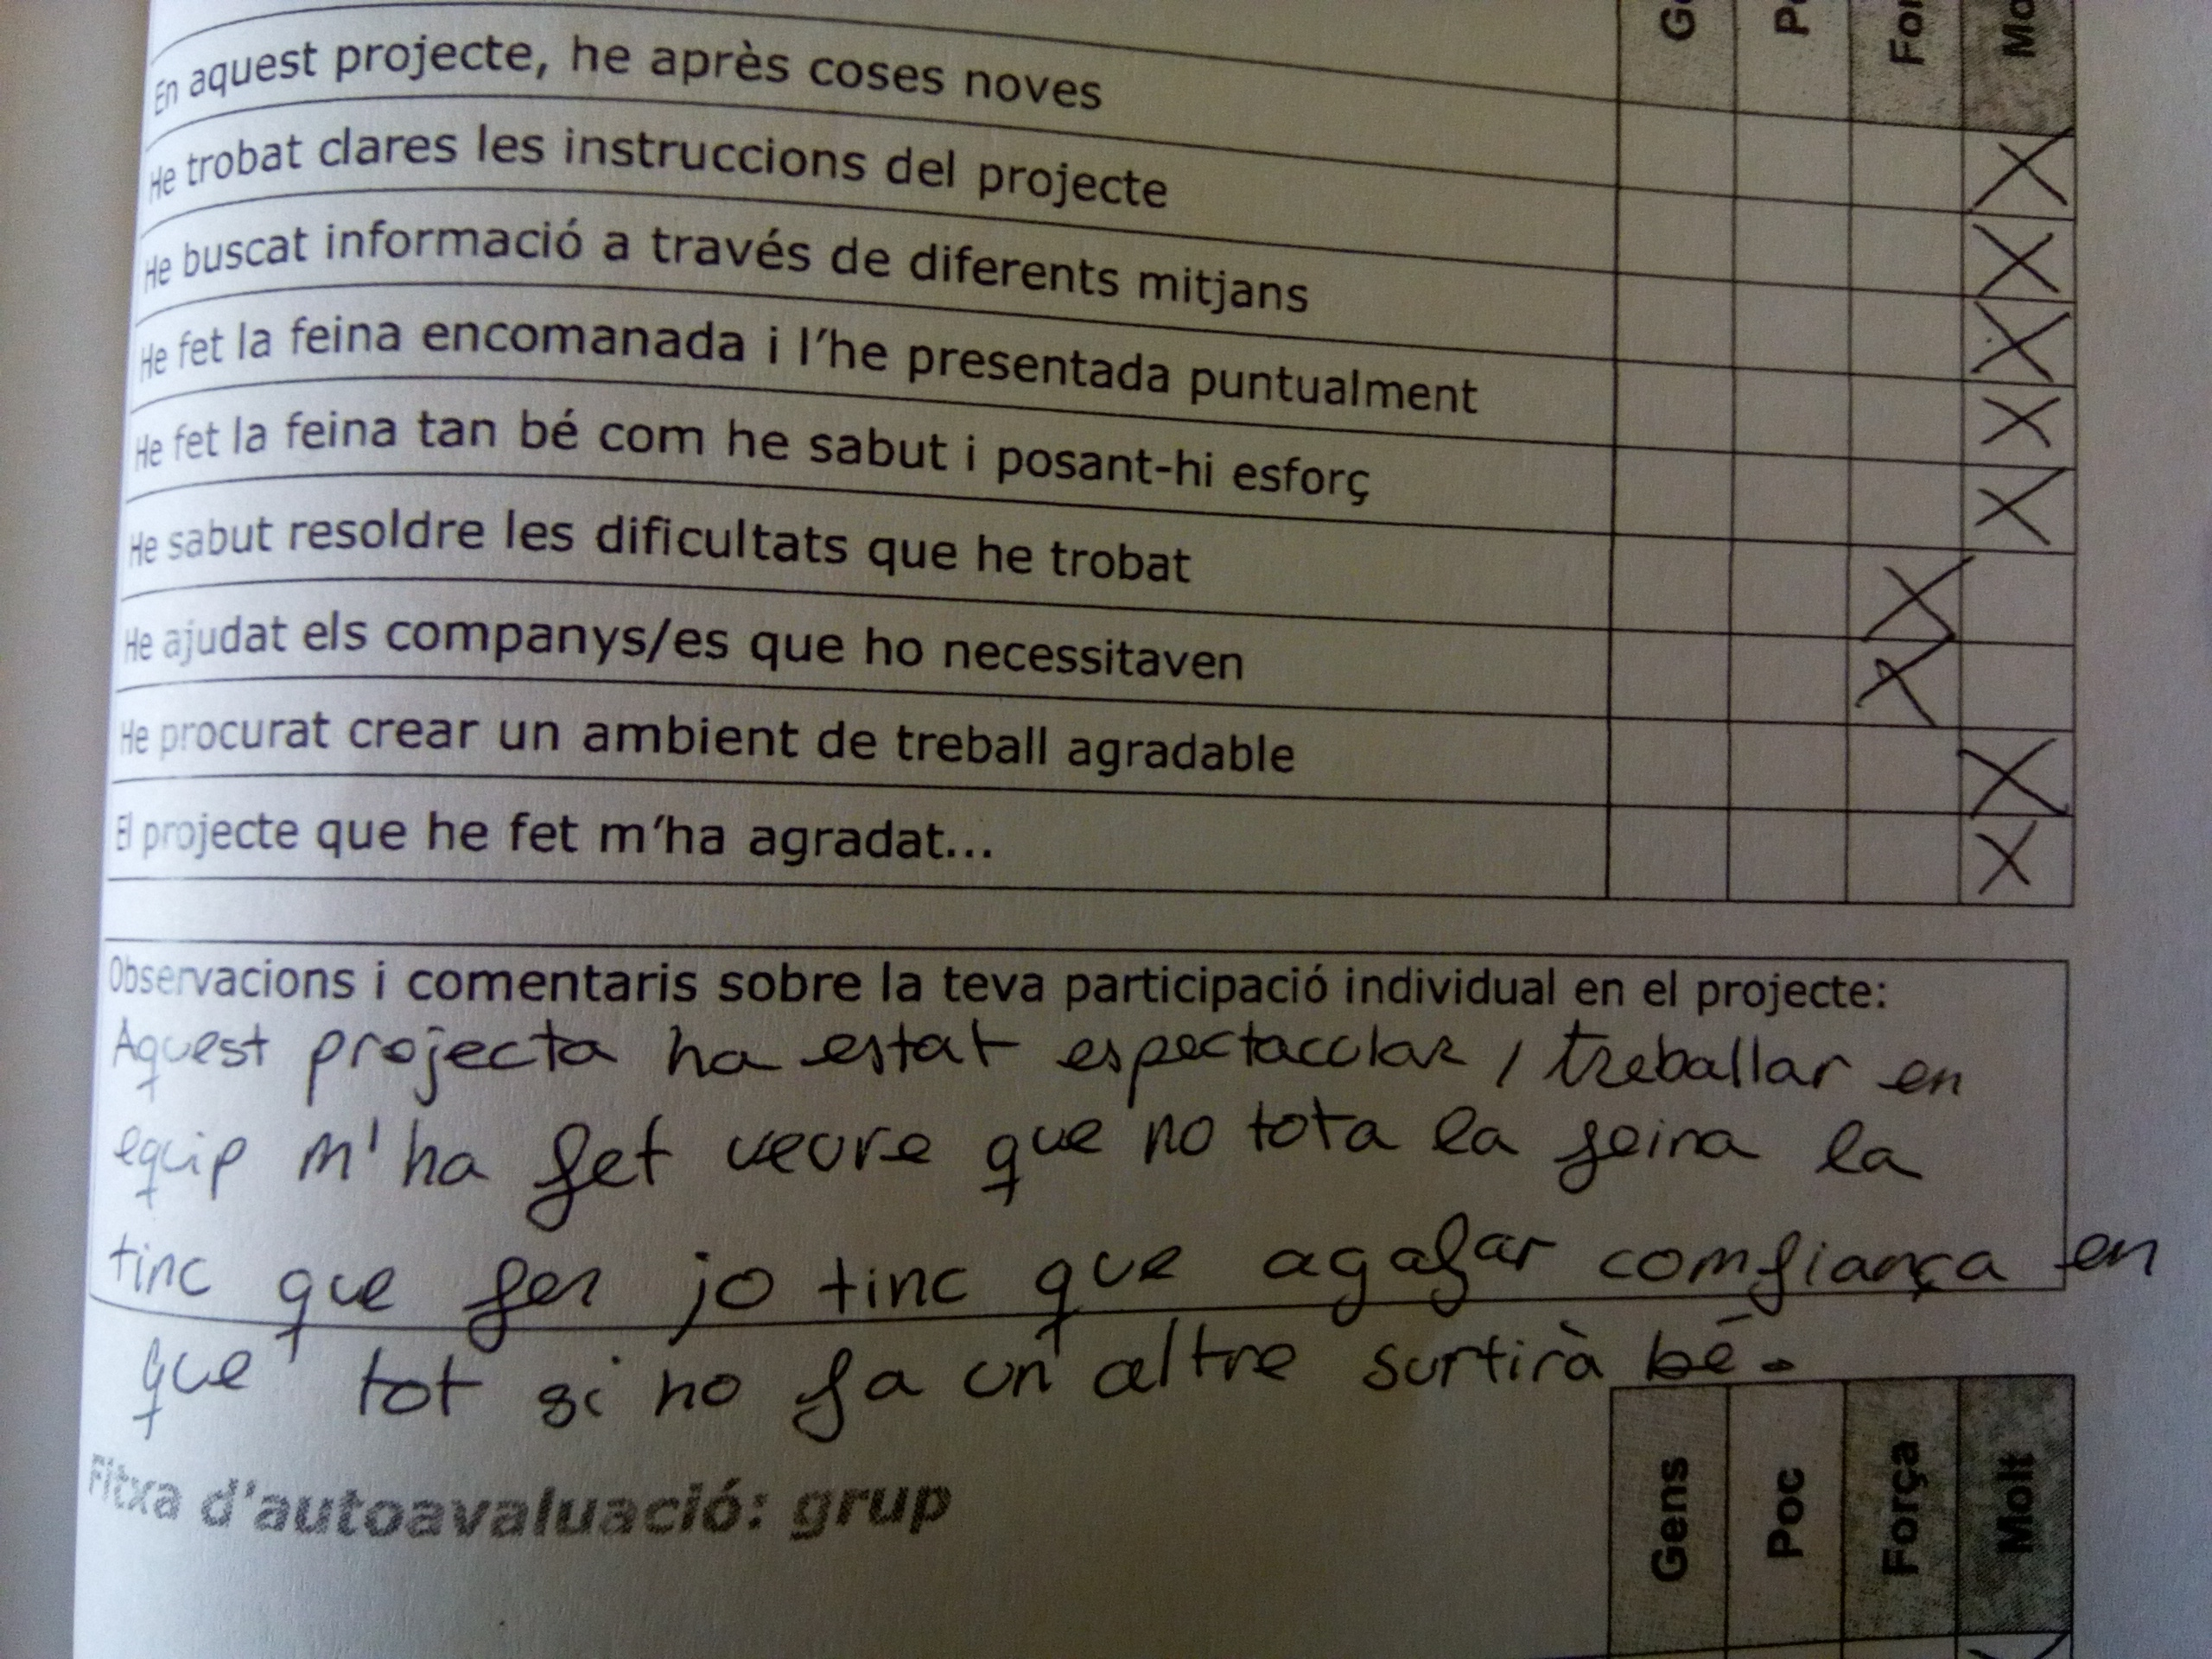 En aquest projecte, he après coses noves
He trobat clares les instruccions del projecte
He buscat informació a través de diferents mitjans
He fet la feina encomanada i l'he presentada puntualment
He fet la feina tan bé com he sabut i posant-hi esforç
He sabut resoldre les dificultats que he trobat
He ajudat els companys/es que ho necessitaven
He procurat crear un ambient de treball agradable
El projecte que he fet m'ha agradat...
Observacions i comentaris sobre la teva participació individual en el projecte:
Aquest projecta ha estat espectacular, treballar en
equip m'ha fet veure que no tota la feina la
tinc que fer jo tinc que agafar comfiança en
que tot si ho fa un altre surtirà bé.
Fitxa d'autoavaluació: grup
Gens
Poc
Força
Molt